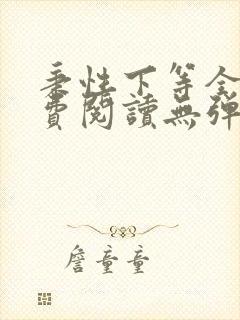 秉性下等全
費閱讀無彈
詹童童